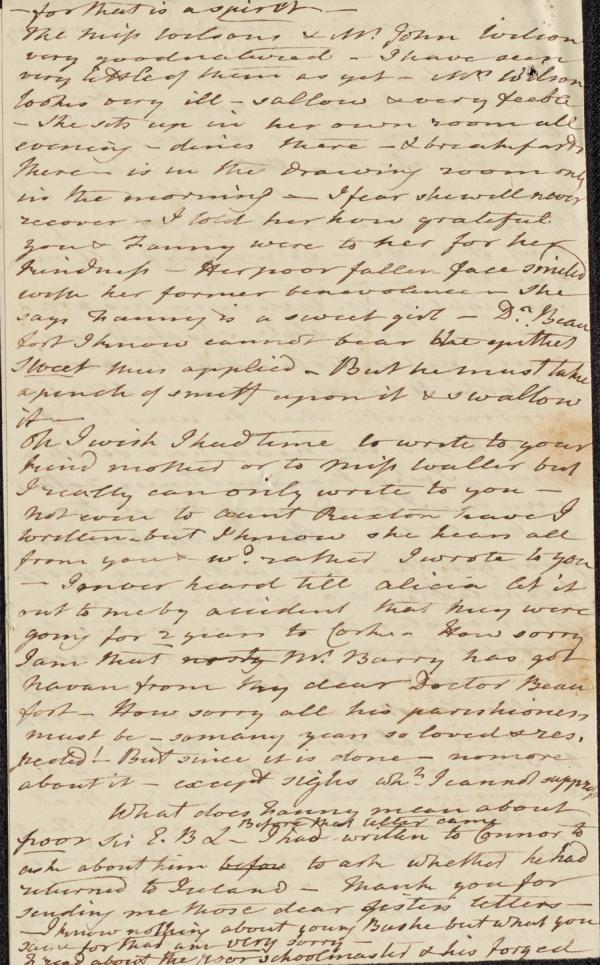 – for that is a spirit –
The Miss Wilsons & Mr. John Wilson
very goodnatured – I have seen
very little of them as yet – Mrs Wilson
looks very ill – sallow & very feeble
– She sits up in her own room all
evening – dines there – & breakfasts
there – is in the drawing room only
in the morning – I fear she will never
recover – I told her how grateful
you & Fanny were to her for her
kindness – Her poor fallen face smiled
with her former benevolence – She
says Fanny is a sweet girl – Dr. Beau
fort I know cannot bear the epithet
sweet thus applied – But he must take
a pinch of snuff upon it & swallow
it –
Oh I wish I had time to write to your
kind mother or to Miss Waller but
I really can only write to you –
not even to Aunt Ruxton have I
written – but I know she hears all
from you & wd. rather I wrote to you
– I never heard till Alicia let it
out to me by accident that they were
going for 2 years to Corke – How sorry
I am that nasty Mr. Barry has got
Navan from my dear Doctor Beau
fort – How sorry all his parishioners
must be – so many years so loved & res,
pected! – But since it is done – no more
about it – except sighs whh. I cannot suppress
What does Fanny mean about
Before that letter came
poor Sir E. B L – I had written to Connor to
ask about him before to ask whether he had
returned to Ireland – Thank you for
sending me those dear sisters letters –
– I know nothing about young Bushe but what you
saw for that am very sorry –
I read about the poor schoolmaster & his forged